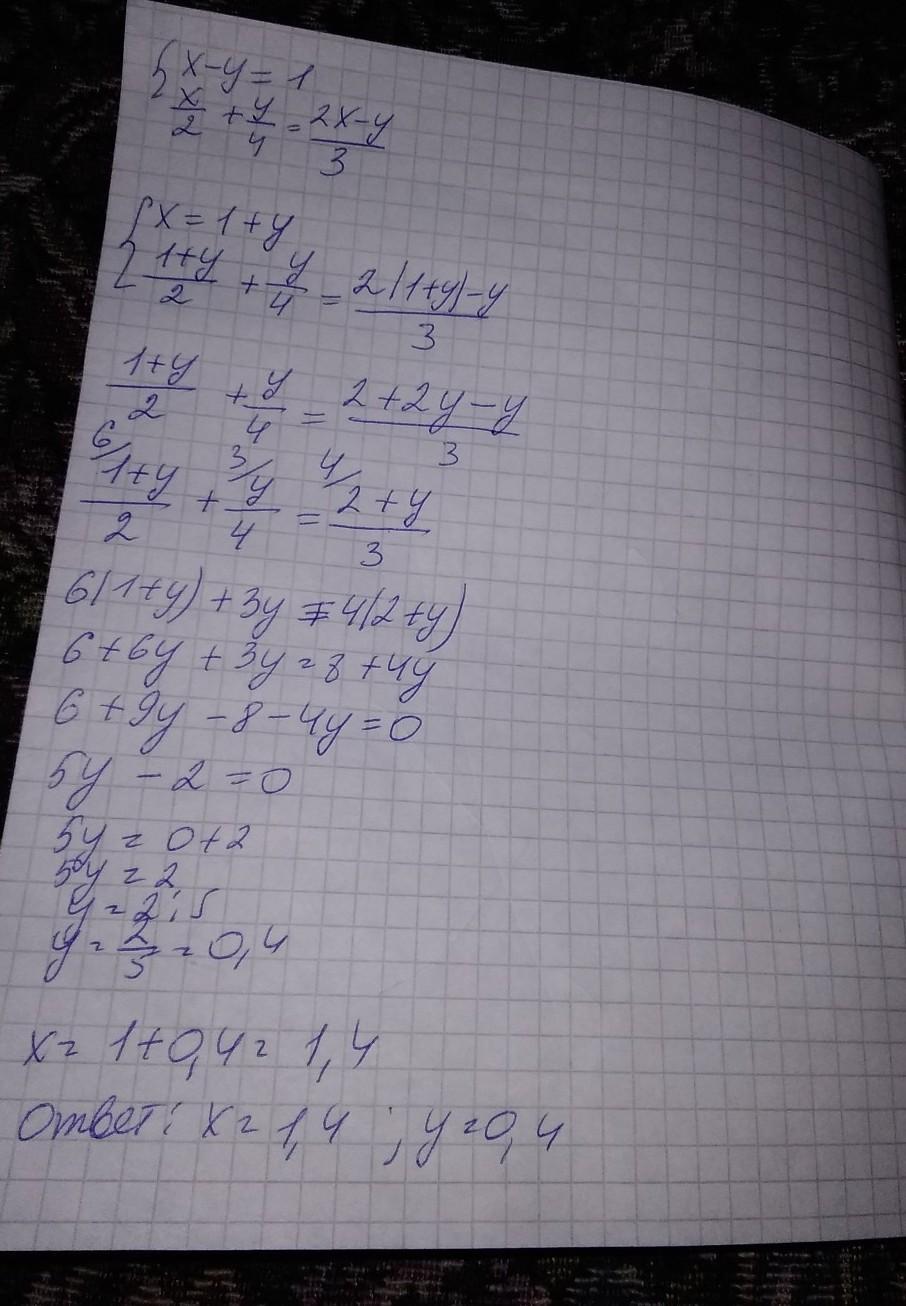 { x-y = 1
x/2 + y/4 = 2x-y/3
{ x = 1+y
1+y/2 + y/4 = 2(1+y)-y/3
1+y/2 + y/4 = 2+2y-y/3
6/ 1+y/2 + 3/ y/4 = 4/ 2+y/3
6(1+y) + 3y = 4(2+y)
6+6y + 3y = 8+4y
6 + 9y - 8 - 4y = 0
5y - 2 = 0
5y = 0+2
5y = 2
y = 2:5
y = 2/5 = 0,4
x = 1+0,4 = 1,4
Ответ: x = 1,4 ; y = 0,4